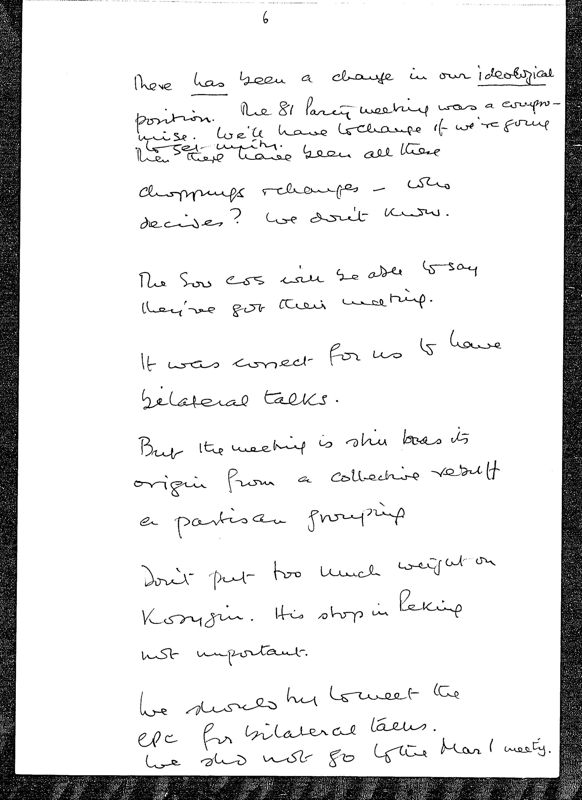 6
There has been a change in our ideological
position. The 81 Party meeting was a compro-
mise. We'll have to change if we're going
to get unity.
Then there have been all these
choppings & changes – who
decides? We don't know.
The Sov cos will be able to say
they've got their meeting.
It was correct for us to have
bilateral talks.
But the meeting is still has its
origin from a collective result
a partisan grouping
Don't put too much weight on
Kosygin. His stop in Peking
not important.
We should try to meet the
CPC for bilateral talks.
We shd not go to the Mar 1 meetg.